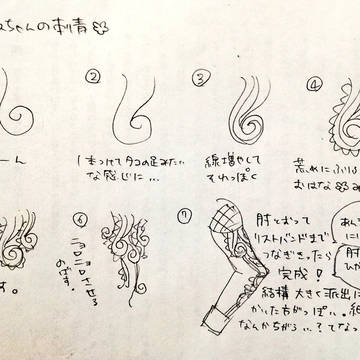 ちゃんの刺青
②
③
④
ーん
1本つけてタコの足みたい
な感じに…
線増やして
それっぽく
荒めにふり
おはな
⑥
⑦
す。
ニョロニョロさせる
のです。
肘とおって
リストバンドまで
つなぎきったら
完成！
結構大きく派出に
かいた方がっぽい。
なんかちがう…？てなっ